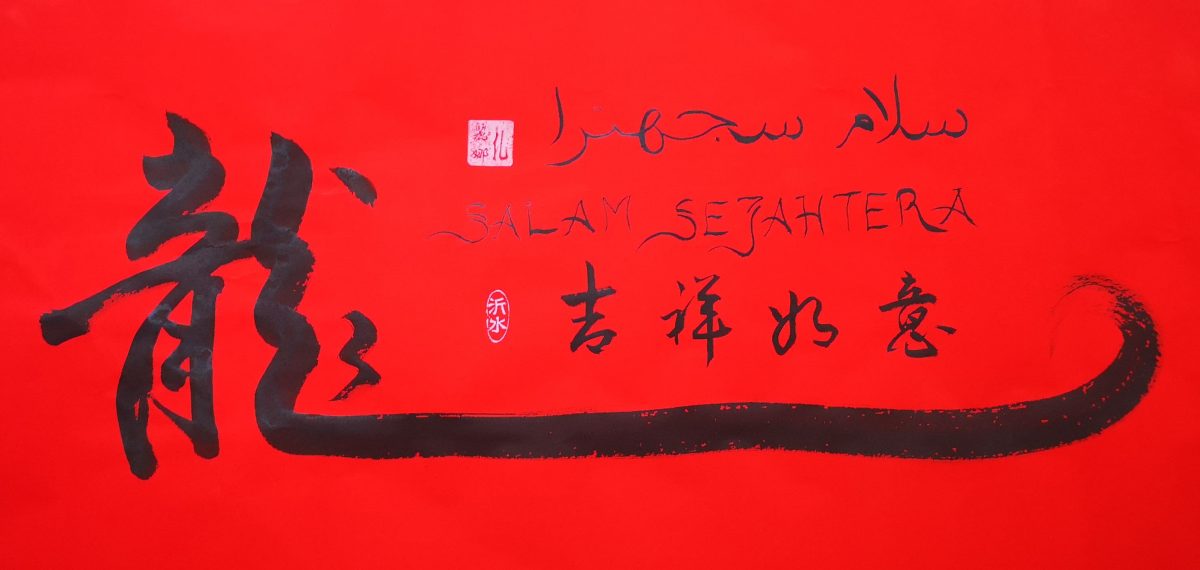 龍
سلام سجهترا
SALAM SEJAHTERA
吉祥如意
沂水